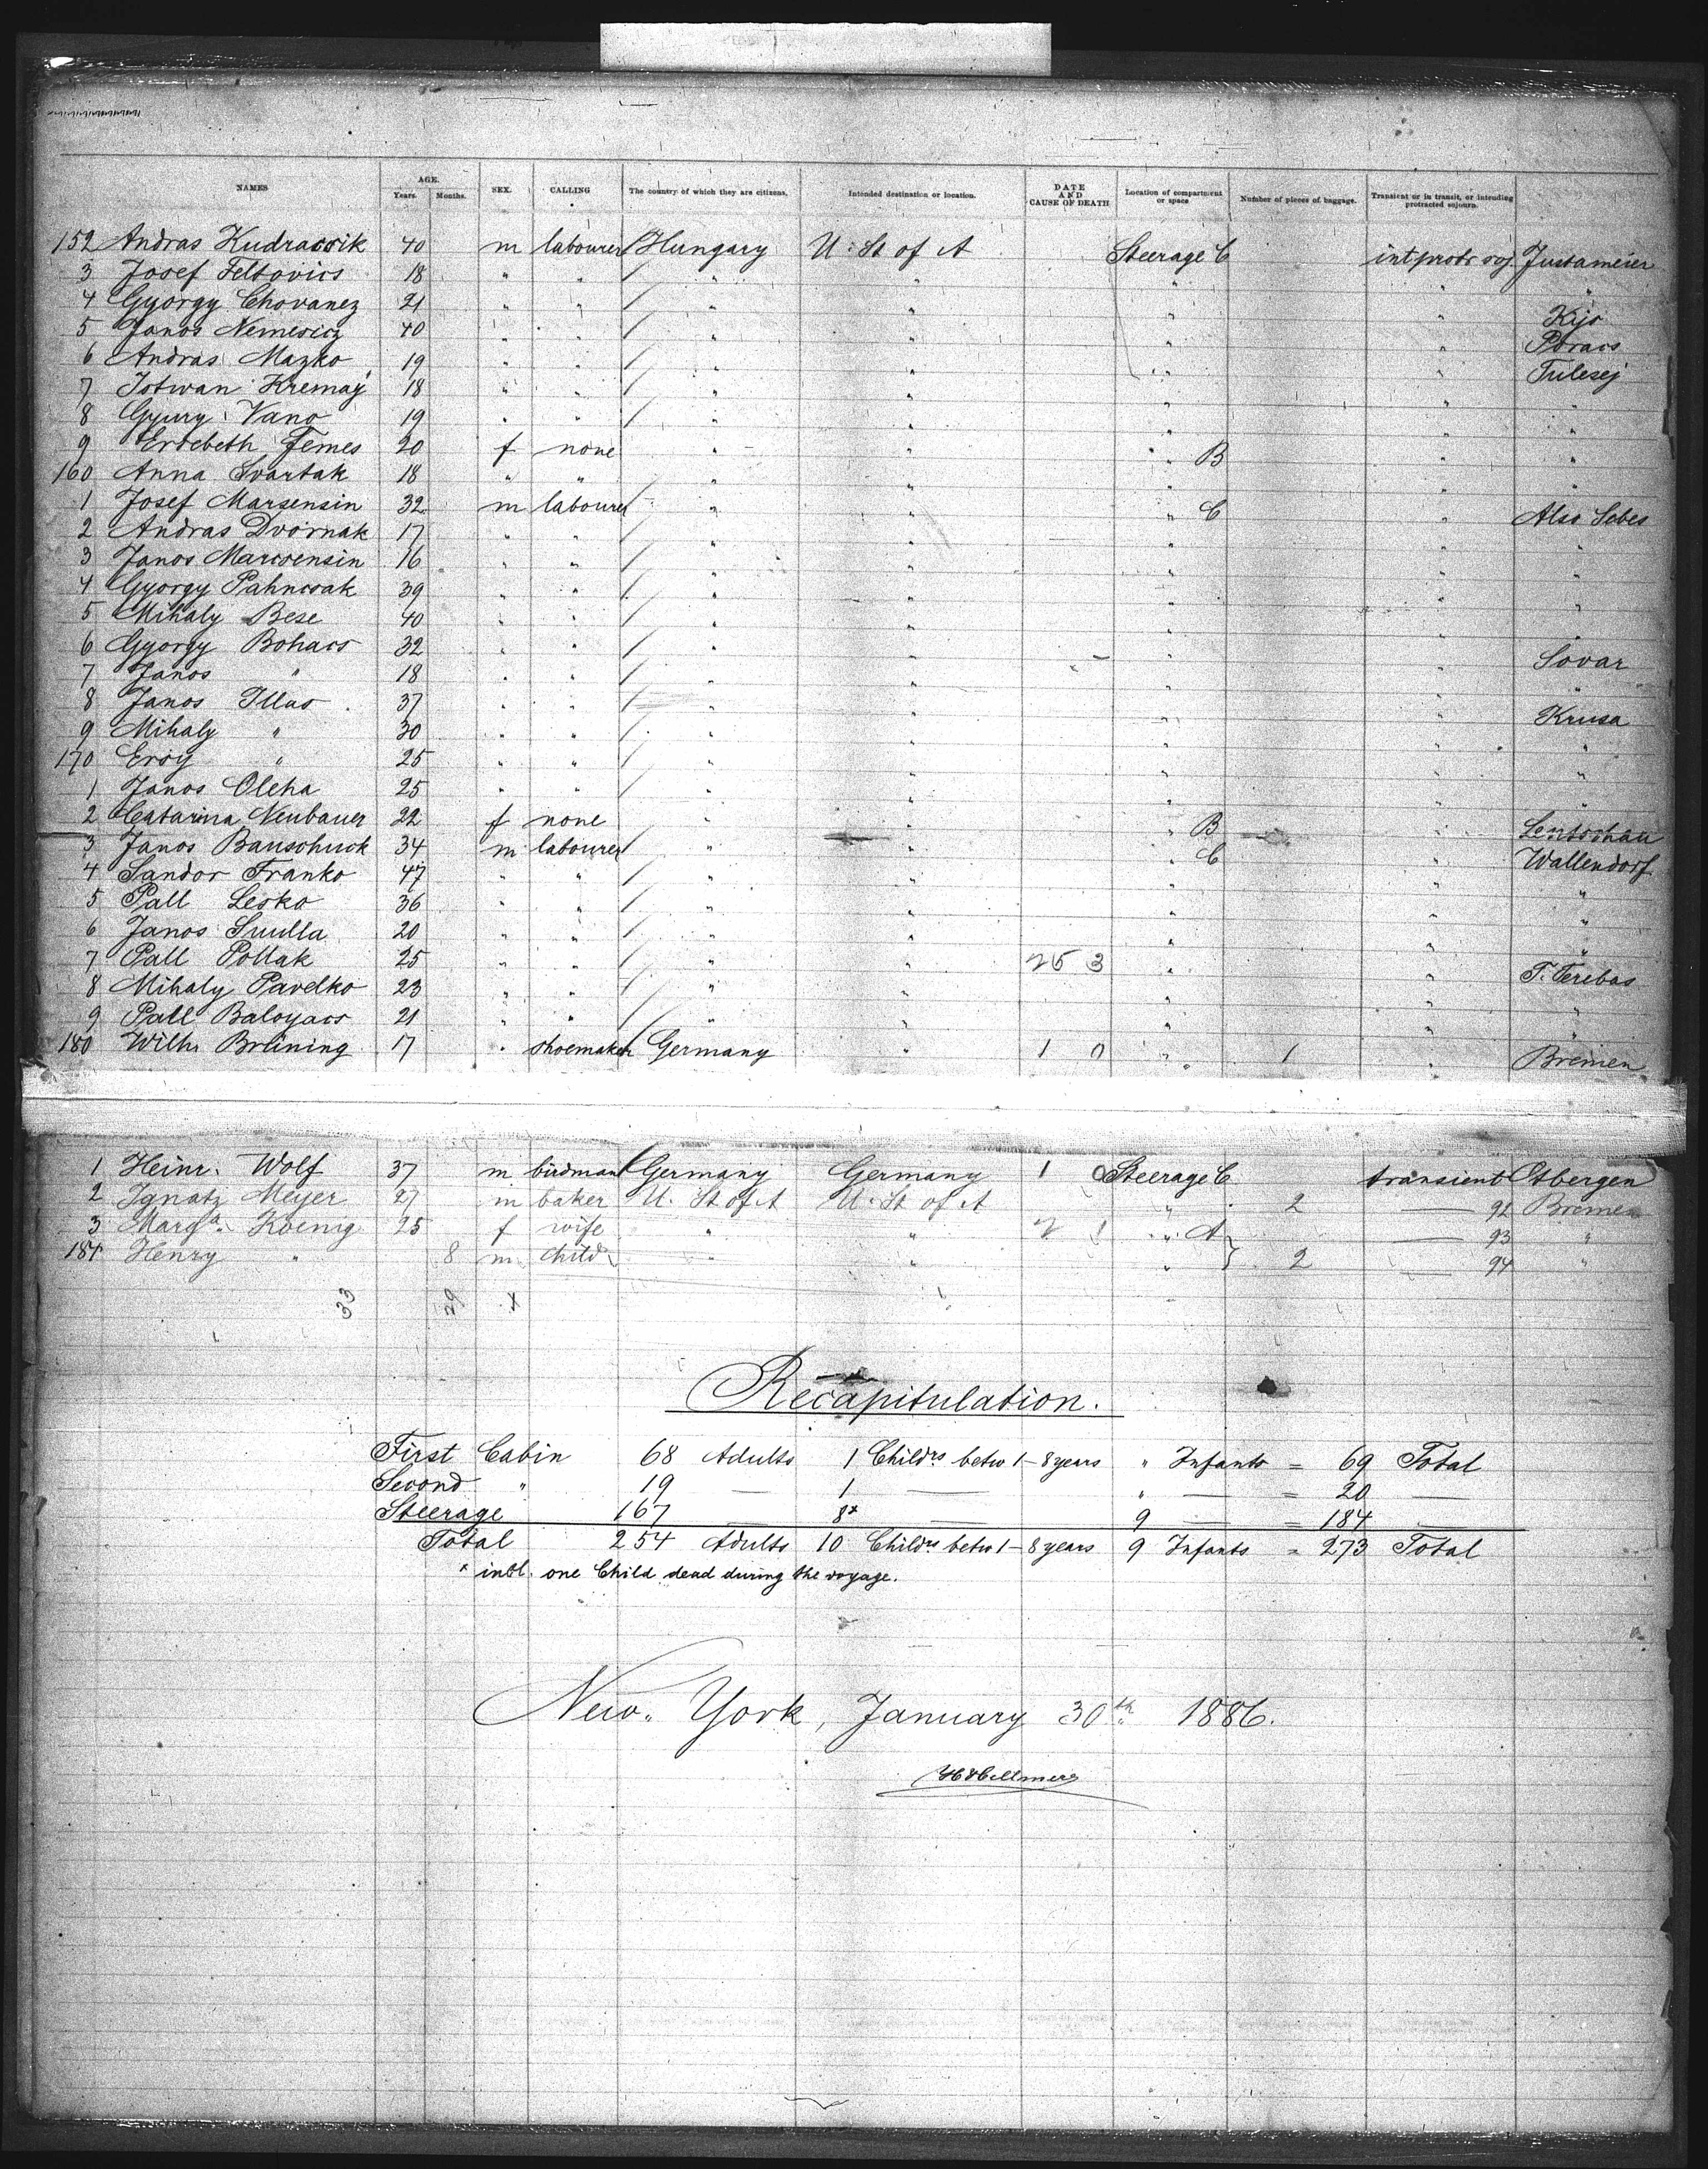 NAMES AGE. Years. Months. SEX. CALLING The country of which they are citizens. Intended destination or location. DATE AND CAUSE OF DEATH Location of compartment or space Number of pieces of baggage. Transient or in transit, or intending protracted sojourn.
152 Andras Kudracsik 40 m labourer Hungary U. St of A Steerage C int protr soj. Justameier
3 Josef Feltovics 18 " " " " " " "
4 Gyorgy Chovanez 21 " " " " " " Kijo
5 Janos Nemesicz 40 " " " " " " Poracs
6 Andras Mazko 19 " " " " " " Tulesej
7 Istwan Kremaj 18 " " " " " " "
8 Gyury Vano 19 " " " " " " "
9 Ersebeth Femes 20 f none " " " B " "
160 Anna Svartak 18 " " " " " " "
1 Josef Marsensin 32 m labourer " " " C " Also Sebes
2 Andras Dvornak 17 " " " " " " "
3 Janos Marcsensin 16 " " " " " " "
4 Gyorgy Pahncsak 39 " " " " " " "
5 Mihaly Bese 40 " " " " " " "
6 Gyorgy Bohacs 32 " " " " " " Sovar
7 Janos " 18 " " " " " " "
8 Janos Illas 37 " " " " " " Krusa
9 Mihaly " 30 " " " " " " "
170 Ersy " 25 " " " " " " "
1 Janos Oleha 25 " " " " " " "
2 Catarina Neubauer 22 f none " " " B " Leutschau
3 Janos Bauschuck 34 m labourer " " " C " Wallendorf
4 Sandor Franko 47 " " " " " " "
5 Pall Lesko 36 " " " " " " "
6 Janos Suulla 20 " " " " " " "
7 Pall Pollak 25 " " " " 25 3 " " T. Terebas
8 Mihaly Pavelko 23 " " " " " " "
9 Pall Baloyacs 21 " " " " " " "
180 Wilh. Brüning 17 " shoemaker Germany " 1 0 " 1 " Bremen
1 Heinr. Wolf 37 m birdman Germany Germany 1 0 Steerage C transient Otbergen
2 Ignatz Meyer 27 m baker U. St of A U. St of A " 2 — 92 Bremen
3 Margª. Koenig 25 f wife " " 2 1 " A — 93 "
184 Henry " 8 m child " " " } 2 — 94 "
33 29 x
Recapitulation.
First Cabin 68 Adults 1 Childrs betw 1-8 years " Infants = 69 Total
Second " 19 — 1 — " — = 20 —
Steerage 167 — 8x — 9 — = 184 —
Total 254 Adults 10 Childrs betw 1-8 years 9 Infants = 273 Total
x incl. one Child dead during the voyage.
New York, January 30th 1886.